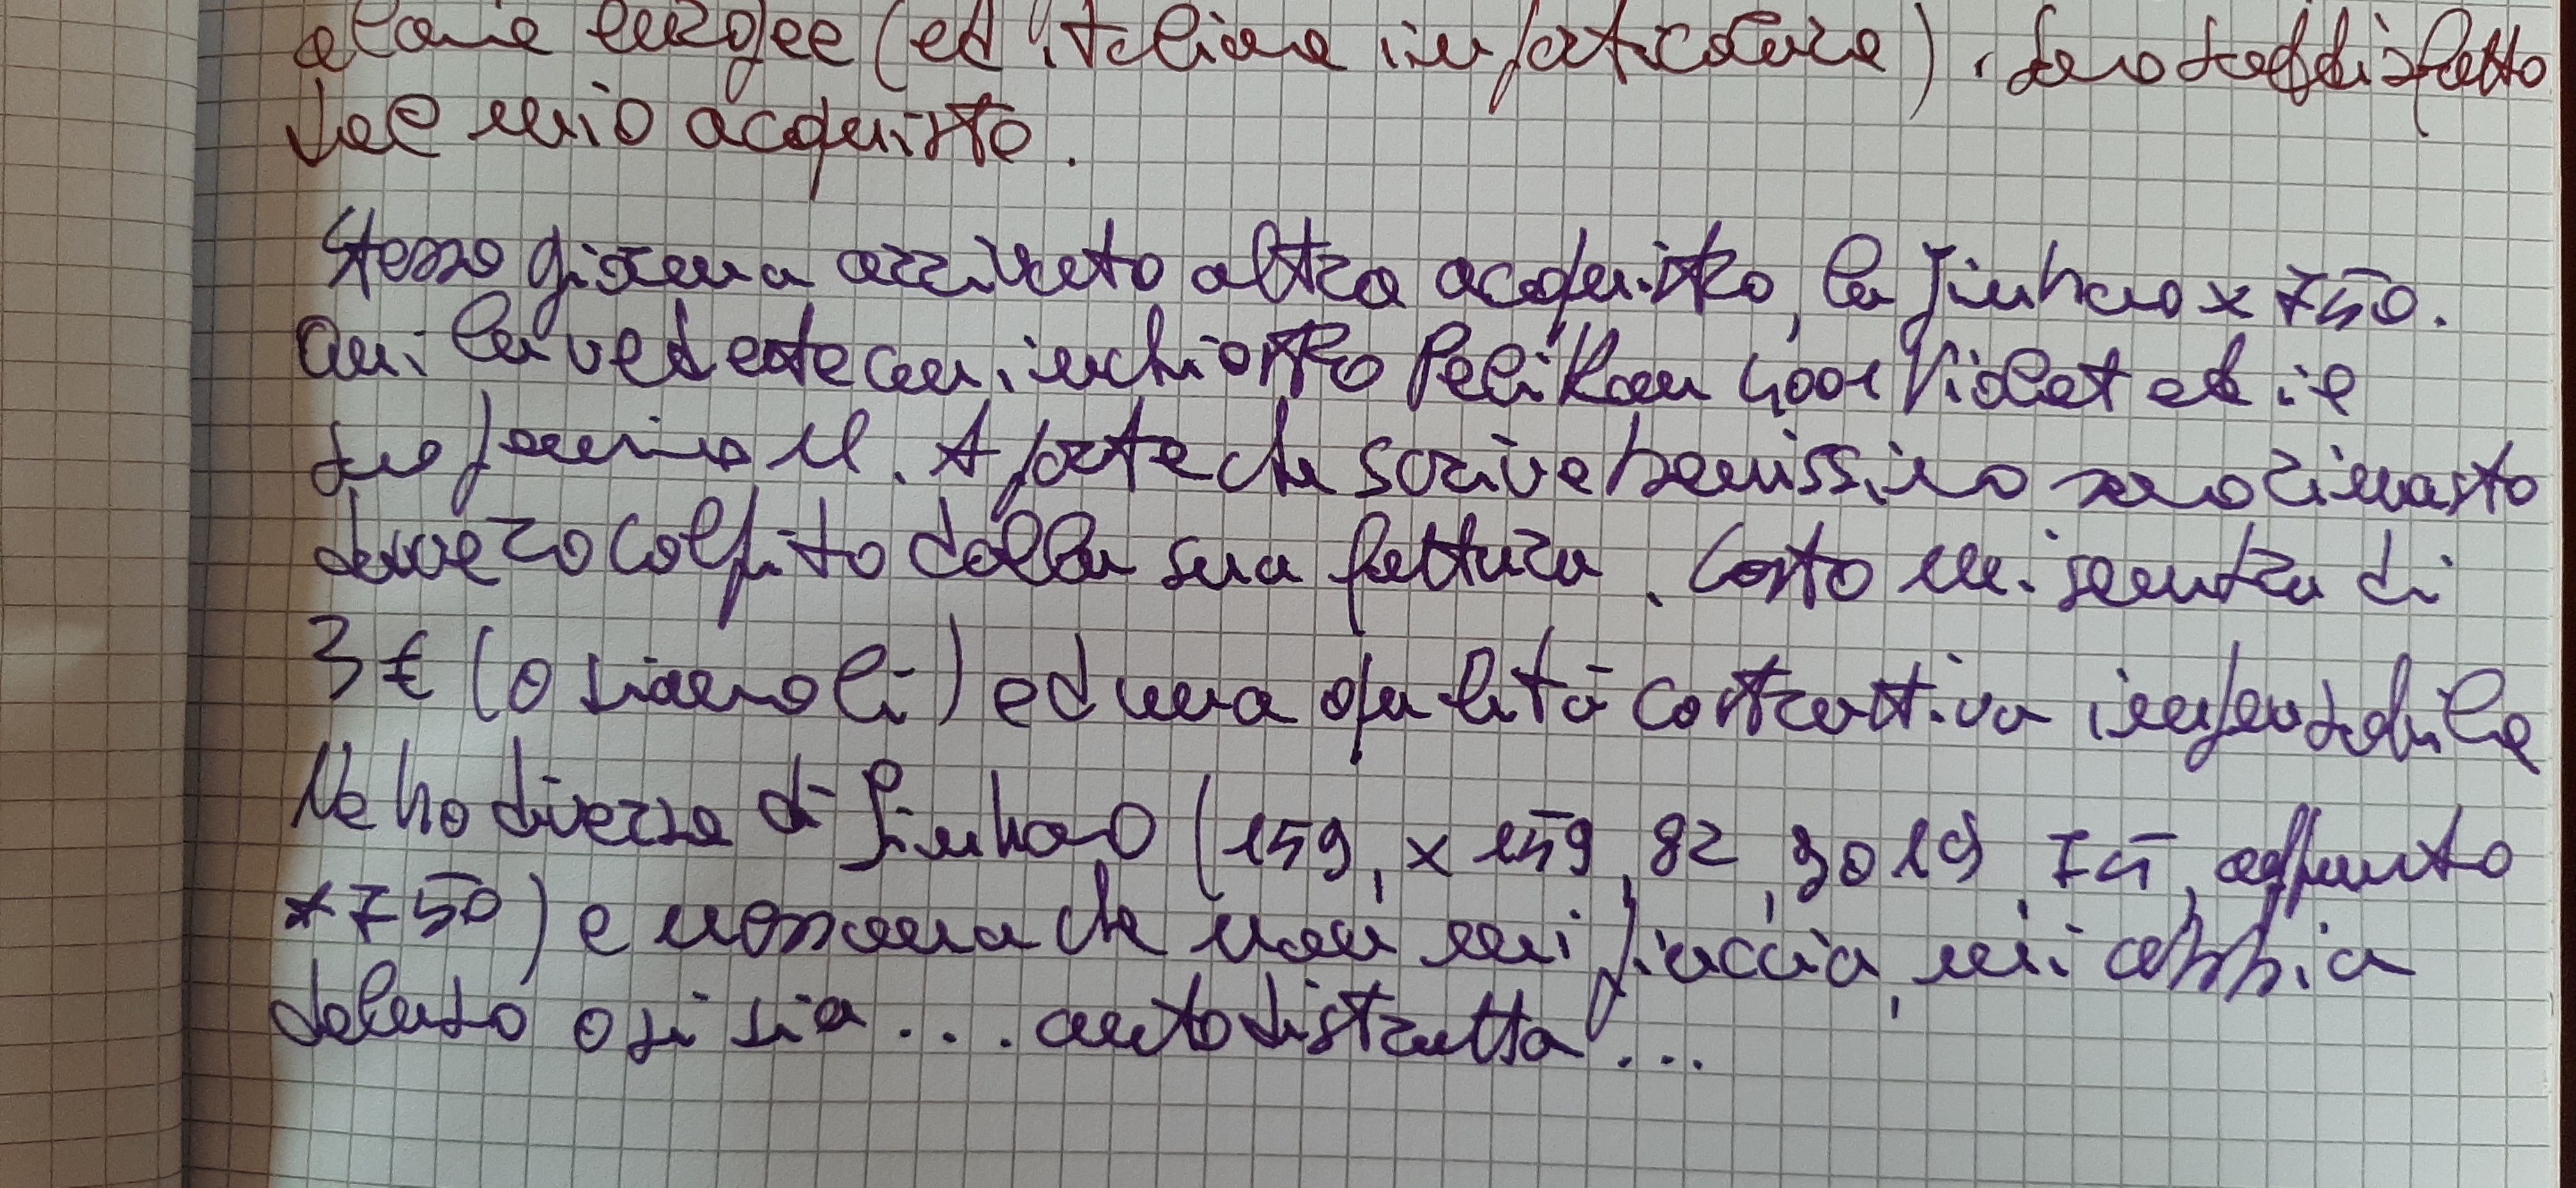 alcune europee (ed italiane in particolare). Sono soddisfatto
del mio acquisto.
Stesso giorno arrivato altro acquisto, la Jinhao x 750.
Qui la vedete con inchiostro Pelikan 4001 Violet ed il
suo pennino M. A parte che scrive benissimo sono rimasto
davvero colpito dalla sua fattura. Costo mi sembra di
3 € (o siamo lì) ed una qualità costruttiva impensabile
Ne ho diverse di Jinhao (159, x 159, 82, 9019 75, appunto
x 750) e nessuna che non mi piaccia, mi abbia
deluso o si sia... autodistrutta...